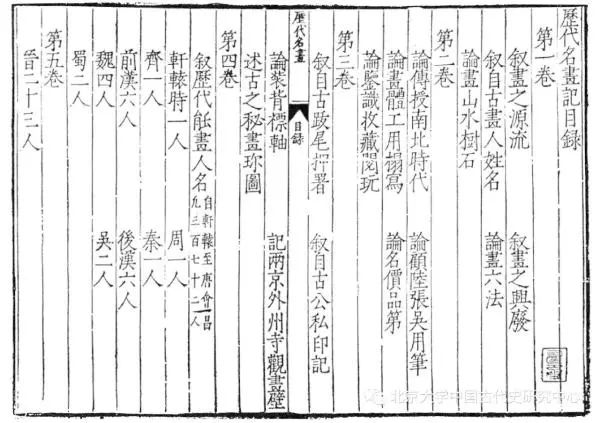 歷代名畫記目錄
第一卷
叙畫之源流 叙畫之興廢
叙自古畫人姓名 論畫六法
論畫山水樹石
第二卷
論傳授南北時代 論顧陸張吳用筆
論畫體工用搨寫 論名價品第
論鑒識收藏閱玩
第三卷
叙自古跋尾押署 叙自古公私印記
歷代名畫 目錄
論裝背標軸 記兩京外州寺觀畫壁
述古之秘畫珎圖
第四卷
叙歷代能畫人名 自軒轅至唐會昌
凡三百七十二人
軒轅時一人 周一人
齊一人 秦一人
前漢六人 後漢六人
魏四人 吳二人
蜀二人
第五卷
晉二十三人
北京大学中国古代史研究中心